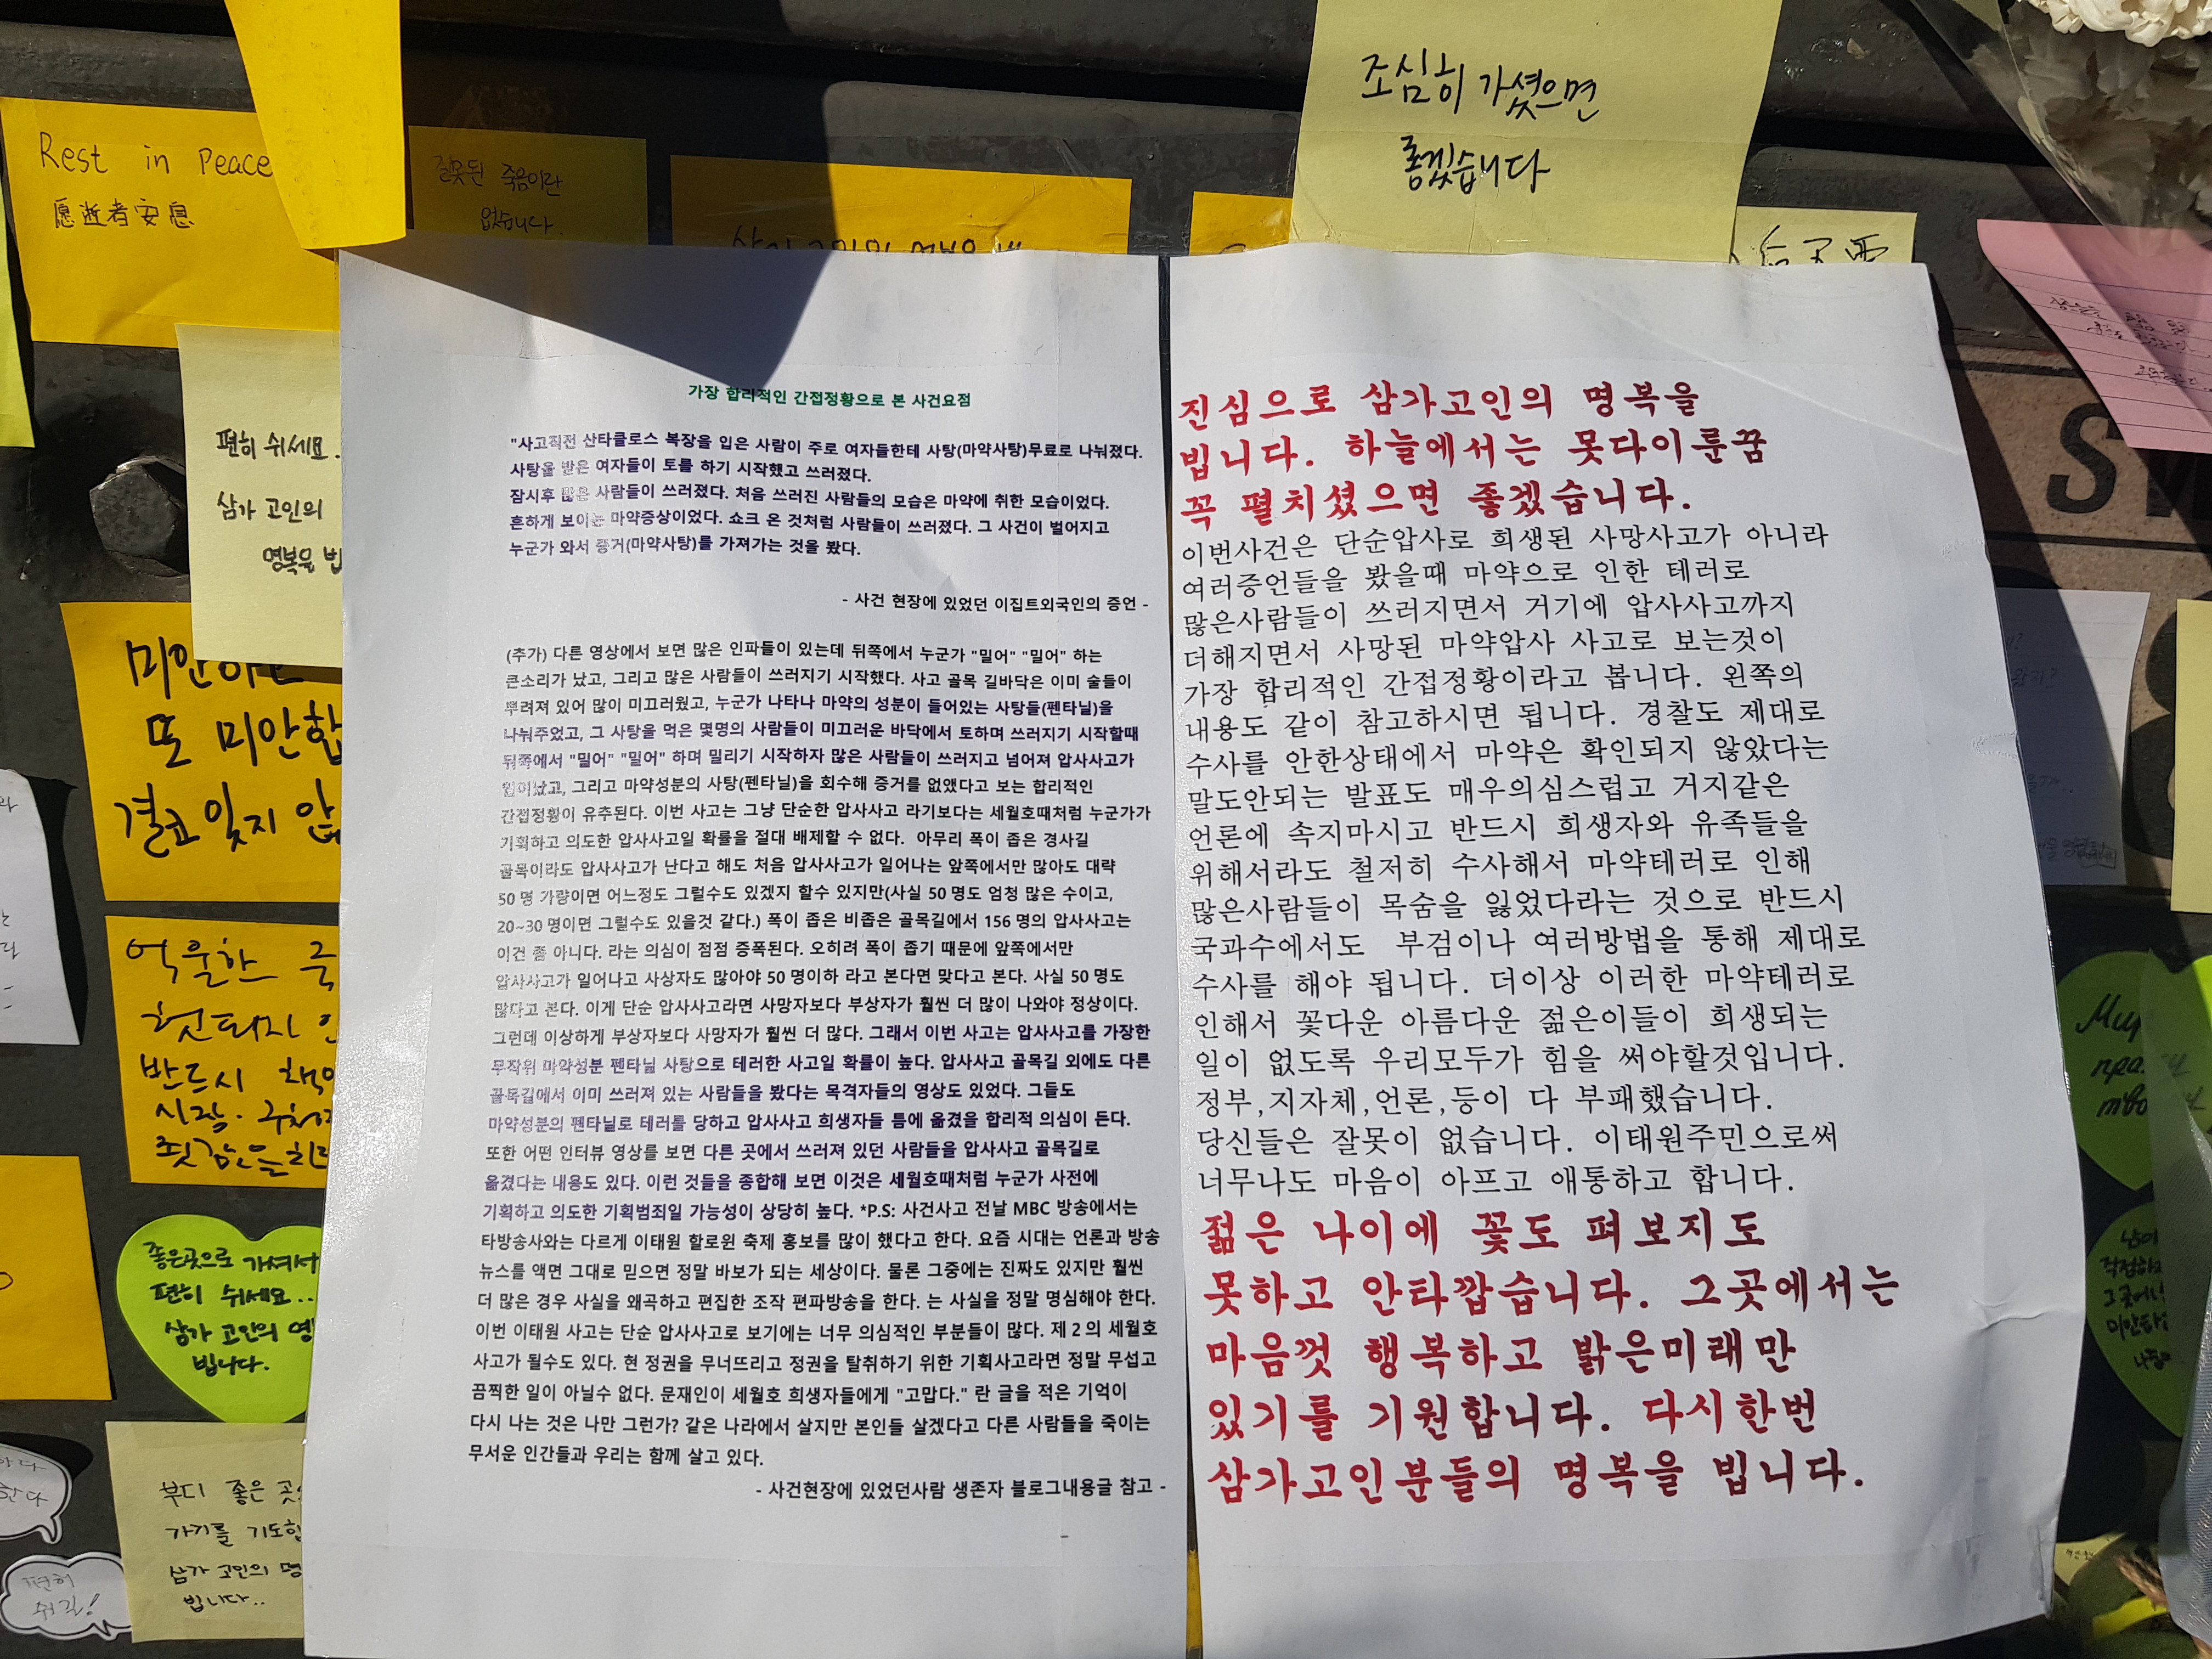 조심히 가셨으면
좋겠습니다
Rest in Peace
愿逝者安息
잘못된 죽음이란
없습니다.
편히 쉬세요.
삼가 고인의
명복을 빕
또 미안합
억울한
반드시
좋은곳으로 가셔서
편히 쉬세요..
삼가 고인의 명
빕니다.
부디 좋은 곳
가기를 기도합
삼가 고인의 명
빕니다..
편히
쉬길!
가장 합리적인 간접정황으로 본 사건요점
"사고직전 산타클로스 복장을 입은 사람이 주로 여자들한테 사탕(마약사탕)무료로 나눠졌다.
사탕을 받은 여자들이 토를 하기 시작했고 쓰러졌다.
잠시후 많은 사람들이 쓰러졌다. 처음 쓰러진 사람들의 모습은 마약에 취한 모습이었다.
흔하게 보이는 마약증상이었다. 쇼크 온 것처럼 사람들이 쓰러졌다. 그 사건이 벌어지고
누군가 와서 증거(마약사탕)를 가져가는 것을 봤다.
- 사건 현장에 있었던 이집트외국인의 증언 -
(추가) 다른 영상에서 보면 많은 인파들이 있는데 뒤쪽에서 누군가 "밀어" "밀어" 하는
큰소리가 났고, 그리고 많은 사람들이 쓰러지기 시작했다. 사고 골목 길바닥은 이미 술들이
뿌려져 있어 많이 미끄러웠고, 누군가 나타나 마약의 성분이 들어있는 사탕들(펜타닐)을
나눠주었고, 그 사탕을 먹은 몇명의 사람들이 미끄러운 바닥에서 토하며 쓰러지기 시작할때
뒤쪽에서 "밀어" "밀어" 하며 밀리기 시작하자 많은 사람들이 쓰러지고 넘어져 압사사고가
일어났고, 그리고 마약성분의 사탕(펜타닐)을 회수해 증거를 없앴다고 보는 합리적인
간접정황이 유추된다. 이번 사고는 그냥 단순한 압사사고 라기보다는 세월호때처럼 누군가가
기획하고 의도한 압사사고일 확률을 절대 배제할 수 없다. 아무리 폭이 좁은 경사길
골목이라도 압사사고가 난다고 해도 처음 압사사고가 일어나는 앞쪽에서만 많아도 대략
50 명 가량이면 어느정도 그럴수도 있겠지 할수 있지만(사실 50 명도 엄청 많은 수이고,
20~30 명이면 그럴수도 있을것 같다.) 폭이 좁은 비좁은 골목길에서 156 명의 압사사고는
이건 좀 아니다. 라는 의심이 점점 증폭된다. 오히려 폭이 좁기 때문에 앞쪽에서만
압사사고가 일어나고 사상자도 많아야 50 명이하 라고 본다면 맞다고 본다. 사실 50 명도
많다고 본다. 이게 단순 압사사고라면 사망자보다 부상자가 훨씬 더 많이 나와야 정상이다.
그런데 이상하게 부상자보다 사망자가 훨씬 더 많다. 그래서 이번 사고는 압사사고를 가장한
무작위 마약성분 펜타닐 사탕으로 테러한 사고일 확률이 높다. 압사사고 골목길 외에도 다른
골목길에서 이미 쓰러져 있는 사람들을 봤다는 목격자들의 영상도 있었다. 그들도
마약성분의 펜타닐로 테러를 당하고 압사사고 희생자들 틈에 옮겼을 합리적 의심이 든다.
또한 어떤 인터뷰 영상를 보면 다른 곳에서 쓰러져 있던 사람들을 압사사고 골목길로
옮겼다는 내용도 있다. 이런 것들을 종합해 보면 이것은 세월호때처럼 누군가 사전에
기획하고 의도한 기획범죄일 가능성이 상당히 높다. *P.S: 사건사고 전날 MBC 방송에서는
타방송사와는 다르게 이태원 할로윈 축제 홍보를 많이 했다고 한다. 요즘 시대는 언론과 방송
뉴스를 액면 그대로 믿으면 정말 바보가 되는 세상이다. 물론 그중에는 진짜도 있지만 훨씬
더 많은 경우 사실을 왜곡하고 편집한 조작 편파방송을 한다. 는 사실을 정말 명심해야 한다.
이번 이태원 사고는 단순 압사사고로 보기에는 너무 의심적인 부분들이 많다. 제 2 의 세월호
사고가 될수도 있다. 현 정권을 무너뜨리고 정권을 탈취하기 위한 기획사고라면 정말 무섭고
끔찍한 일이 아닐수 없다. 문재인이 세월호 희생자들에게 "고맙다." 란 글을 적은 기억이
다시 나는 것은 나만 그런가? 같은 나라에서 살지만 본인들 살겠다고 다른 사람들을 죽이는
무서운 인간들과 우리는 함께 살고 있다.
- 사건현장에 있었던사람 생존자 블로그내용글 참고 -
진심으로 삼가고인의 명복을
빕니다. 하늘에서는 못다이룬꿈
꼭 펼치셨으면 좋겠습니다.
이번사건은 단순압사로 희생된 사망사고가 아니라
여러증언들을 봤을때 마약으로 인한 테러로
많은사람들이 쓰러지면서 거기에 압사사고까지
더해지면서 사망된 마약압사 사고로 보는것이
가장 합리적인 간접정황이라고 봅니다. 왼쪽의
내용도 같이 참고하시면 됩니다. 경찰도 제대로
수사를 안한상태에서 마약은 확인되지 않았다는
말도안되는 발표도 매우의심스럽고 거지같은
언론에 속지마시고 반드시 희생자와 유족들을
위해서라도 철저히 수사해서 마약테러로 인해
많은사람들이 목숨을 잃었다라는 것으로 반드시
국과수에서도 부검이나 여러방법을 통해 제대로
수사를 해야 됩니다. 더이상 이러한 마약테러로
인해서 꽃다운 아름다운 젊은이들이 희생되는
일이 없도록 우리모두가 힘을 써야할것입니다.
정부,지자체,언론,등이 다 부패했습니다.
당신들은 잘못이 없습니다. 이태원주민으로써
너무나도 마음이 아프고 애통하고 합니다.
젊은 나이에 꽃도 펴보지도
못하고 안타깝습니다. 그곳에서는
마음껏 행복하고 밝은미래만
있기를 기원합니다. 다시한번
삼가고인분들의 명복을 빕니다.